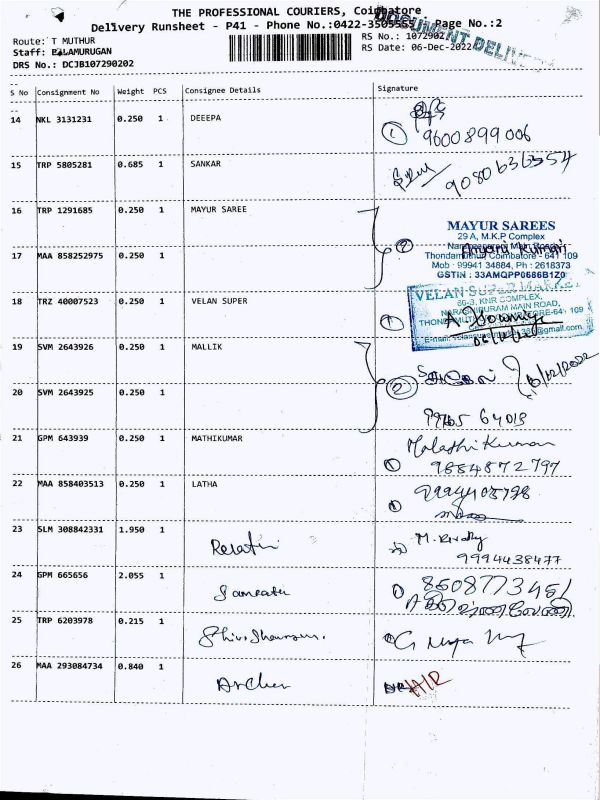 THE PROFESSIONAL COURIERS, Coimbatore
Delivery Runsheet - P41 - Phone No.:0422-3505555 Page No.:2
DOCUMENT DELIVE
Route: T MUTHUR
RS No.: 1072902
Staff: BALAMURUGAN
RS Date: 06-Dec-2022
DRS No.: DCJB107290202
S No Consignment No Weight PCS Consignee Details Signature
14 NKL 3131231 0.250 1 DEEEPA
1 9600899006
15 TRP 5805281 0.685 1 SANKAR
9080636354
16 TRP 1291685 0.250 1 MAYUR SAREE
MAYUR SAREES
29 A, M.K.P Complex
Main Road
17 MAA 858252975 0.250 1 2 Kumari
Thondamuthur, Coimbatore - 641 109
Mob : 99941 34884, Ph : 2618373
GSTIN : 33AMQPP0686B1Z0
18 TRZ 40007523 0.250 1 VELAN SUPER
VELAN SUPER MARKET
66-3, KNR COMPLEX,
NARASIPURAM MAIN ROAD,
1 109
E-mail: @gmail.com
19 SVM 2643926 0.250 1 MALLIK
2 6/12/2022
20 SVM 2643925 0.250 1
64013
21 GPM 643939 0.250 1 MATHIKUMAR
Malathi Kumar
1 9884872797
22 MAA 858403513 0.250 1 LATHA
1
23 SLM 308842331 1.950 1
9994438477
24 GPM 665656 2.055 1
1 8608773451
25 TRP 6203978 0.215 1
26 MAA 293084734 0.840 1 Archer